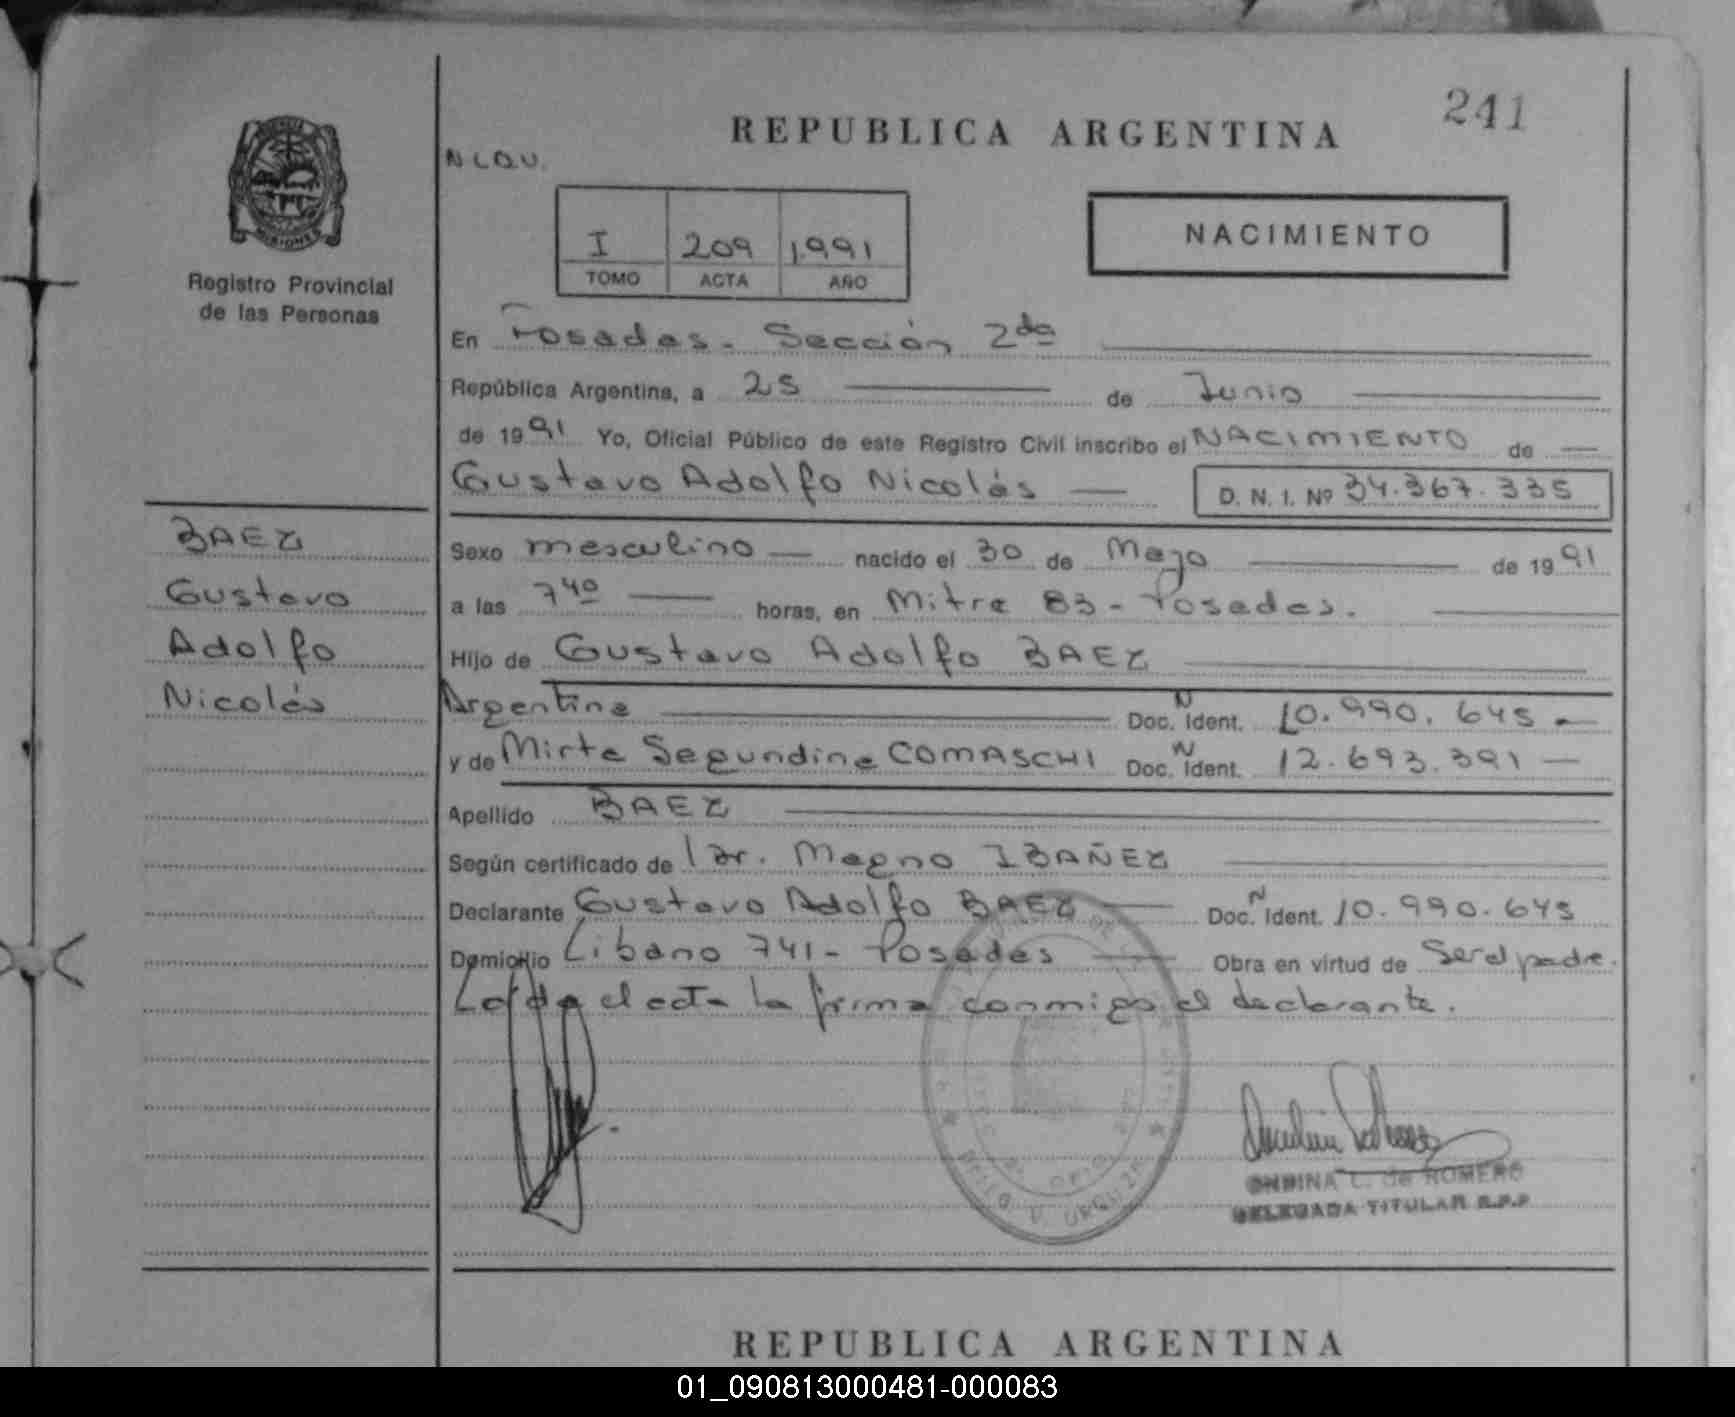 241
REPUBLICA ARGENTINA
MISIONES
Registro Provincial
de las Personas
I 209 1.991
TOMO ACTA AÑO
NACIMIENTO
En Posadas. Sección 2da
República Argentina, a 25 de Junio
de 1991 Yo, Oficial Público de este Registro Civil inscribo el NACIMIENTO de
Gustavo Adolfo Nicolás D. N. I. Nº 34.367.335
BAEZ
Gustavo
Adolfo
Nicolás
Sexo masculino nacido el 30 de Mayo de 1991
a las 7 40 horas, en Mitre 83 - Posadas.
Hijo de Gustavo Adolfo BAEZ
Argentina Doc. Ident. N 10.990.645
y de Mirta Segundina COMASCHI Doc. Ident. N 12.693.391
Apellido BAEZ
Según certificado de Dr. Magno IBAÑEZ
Declarante Gustavo Adolfo BAEZ Doc. Ident. N 10.990.645
Domicilio Libano 741 - Posadas Obra en virtud de ser el padre.
Leída el acta la firma conmigo el declarante.
ONDINA L. de ROMERO
DELEGADA TITULAR R.P.P
REPUBLICA ARGENTINA
01_090813000481-000083